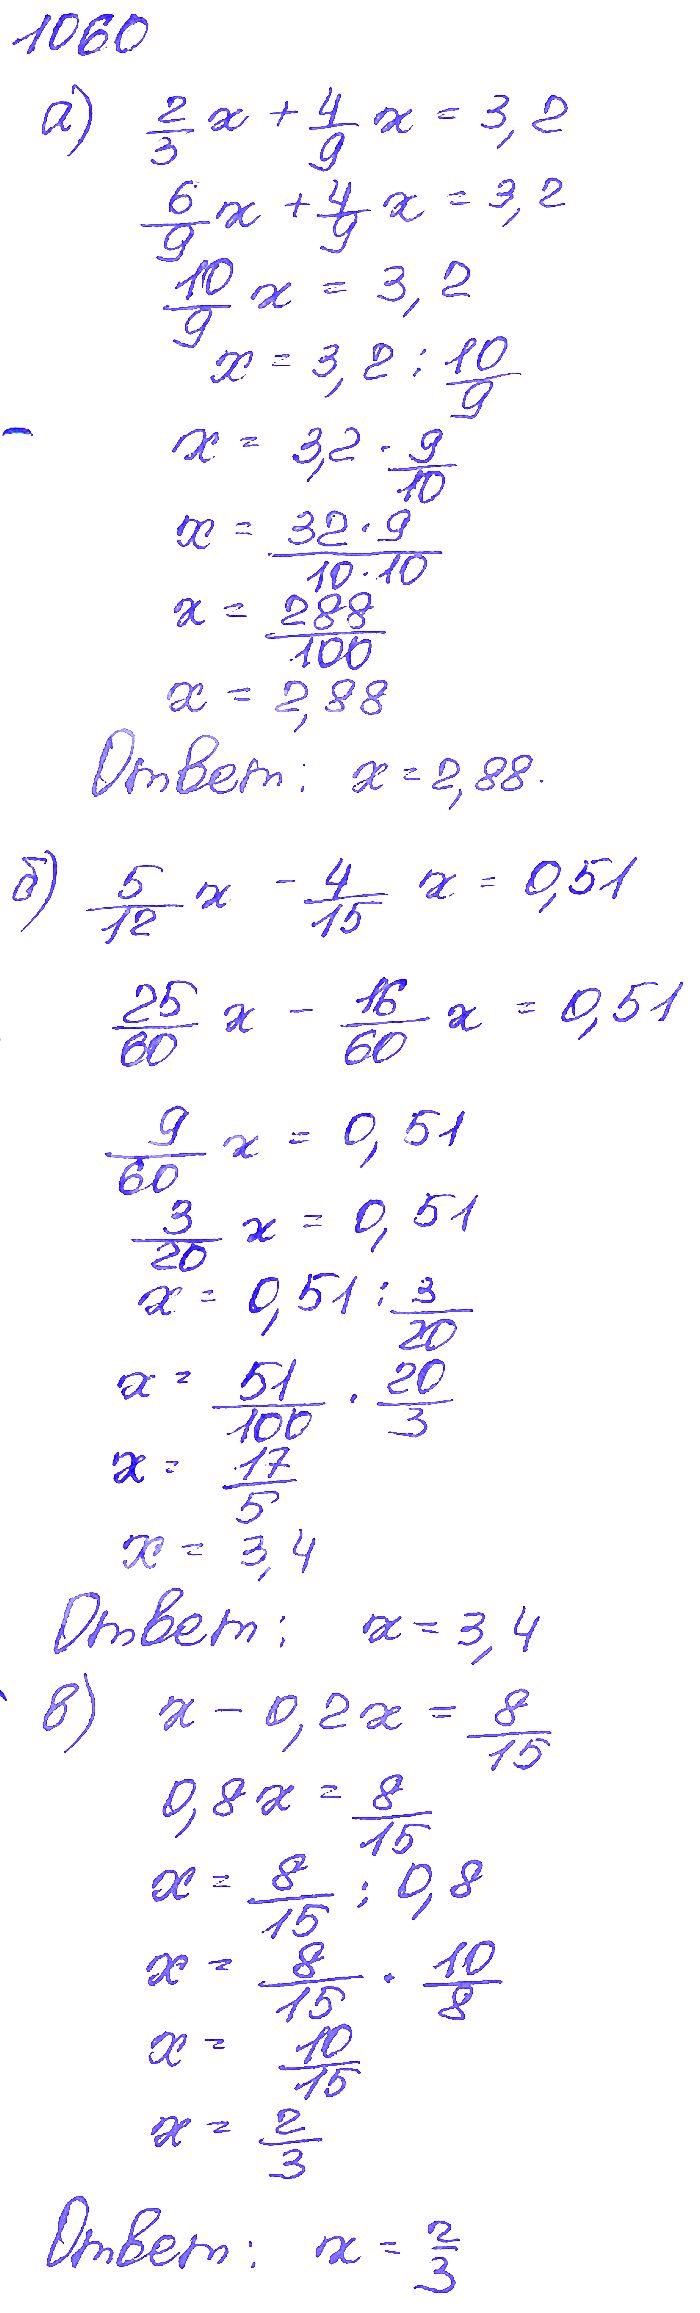 1060
а) 2/3 x + 4/9 x = 3,2
6/9 x + 4/9 x = 3,2
10/9 x = 3,2
x = 3,2 : 10/9
x = 3,2 · 9/10
x = 32 · 9 / 10 · 10
x = 288/100
x = 2,88
Ответ: x = 2,88.
б) 5/12 x - 4/15 x = 0,51
25/60 x - 16/60 x = 0,51
9/60 x = 0,51
3/20 x = 0,51
x = 0,51 : 3/20
x = 51/100 · 20/3
x = 17/5
x = 3,4
Ответ: x = 3,4
в) x - 0,2x = 8/15
0,8x = 8/15
x = 8/15 : 0,8
x = 8/15 · 10/8
x = 10/15
x = 2/3
Ответ: x = 2/3